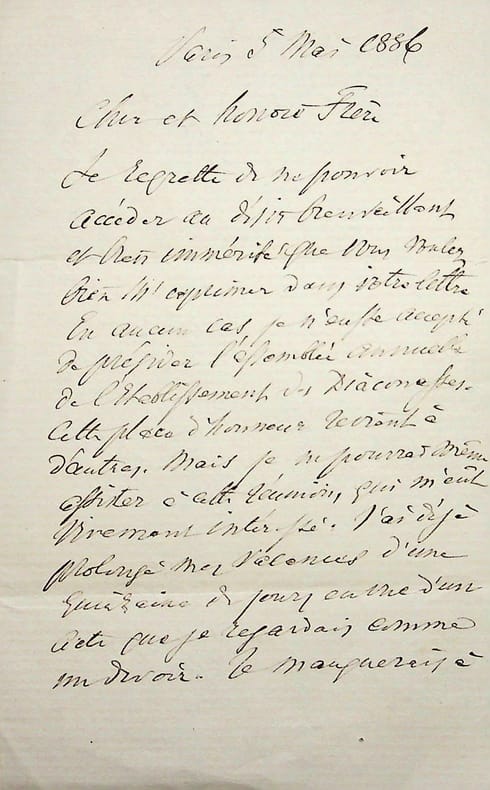 Paris 5 Mai 1886
Cher et honoré Frère
Je regrette de ne pouvoir
accéder au désir bienveillant
et bien immérité que vous voulez
bien m'exprimer dans votre lettre
En aucun cas je n'eusse accepté
de présider l'assemblée annuelle
de l'Etablissement des Diaconesses.
Cette place d'honneur revient à
d'autres. Mais je ne pourrai même
assister à cette réunion, qui m'eût
vivement intéressé. J'ai déjà
prolongé mes vacances d'une
quinzaine de jours en vue d'un
acte que je regardais comme
un devoir. Je manquerais à